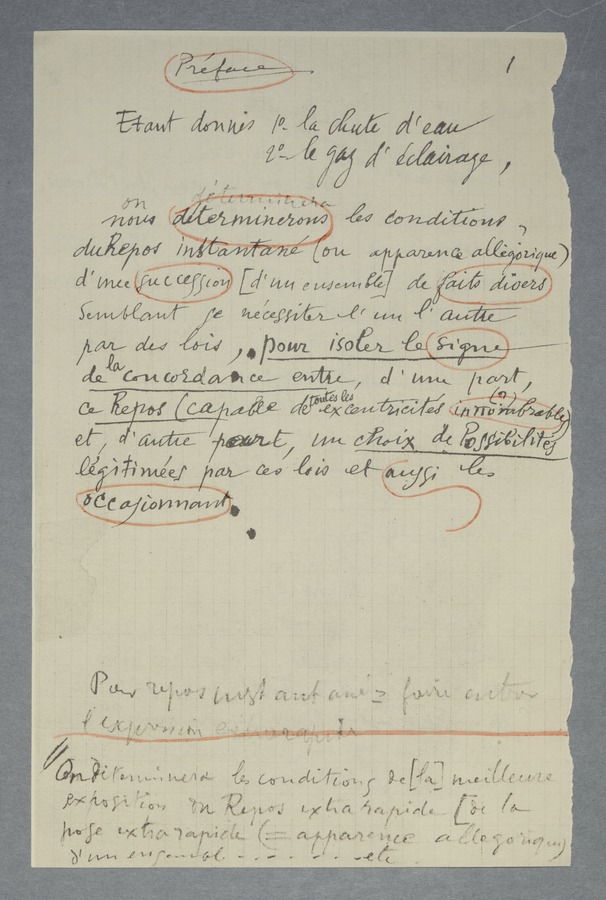 Préface
1
Etant donnés 1º- la chute d'eau
2º- le gaz d'éclairage,
on déterminera
nous déterminerons les conditions
du Repos instantané (ou apparence allégorique)
d'une succession [d'un ensemble] de faits divers
semblant se nécessiter l'un l'autre
par des lois, pour isoler le signe
de la concordance entre, d'une part,
ce Repos (capable de toutes les excentricités innombrables (?)
et, d'autre part, un choix de Possibilités
légitimées par ces lois et aussi les
occasionnant.
Pour repos instantané = faire entrer
l'expression extrarapide
On déterminera les conditions de [la] meilleure
exposition du Repos extra rapide [de la
pose extra rapide (= apparence allégorique)
d'un ensembl - - - - - - etc